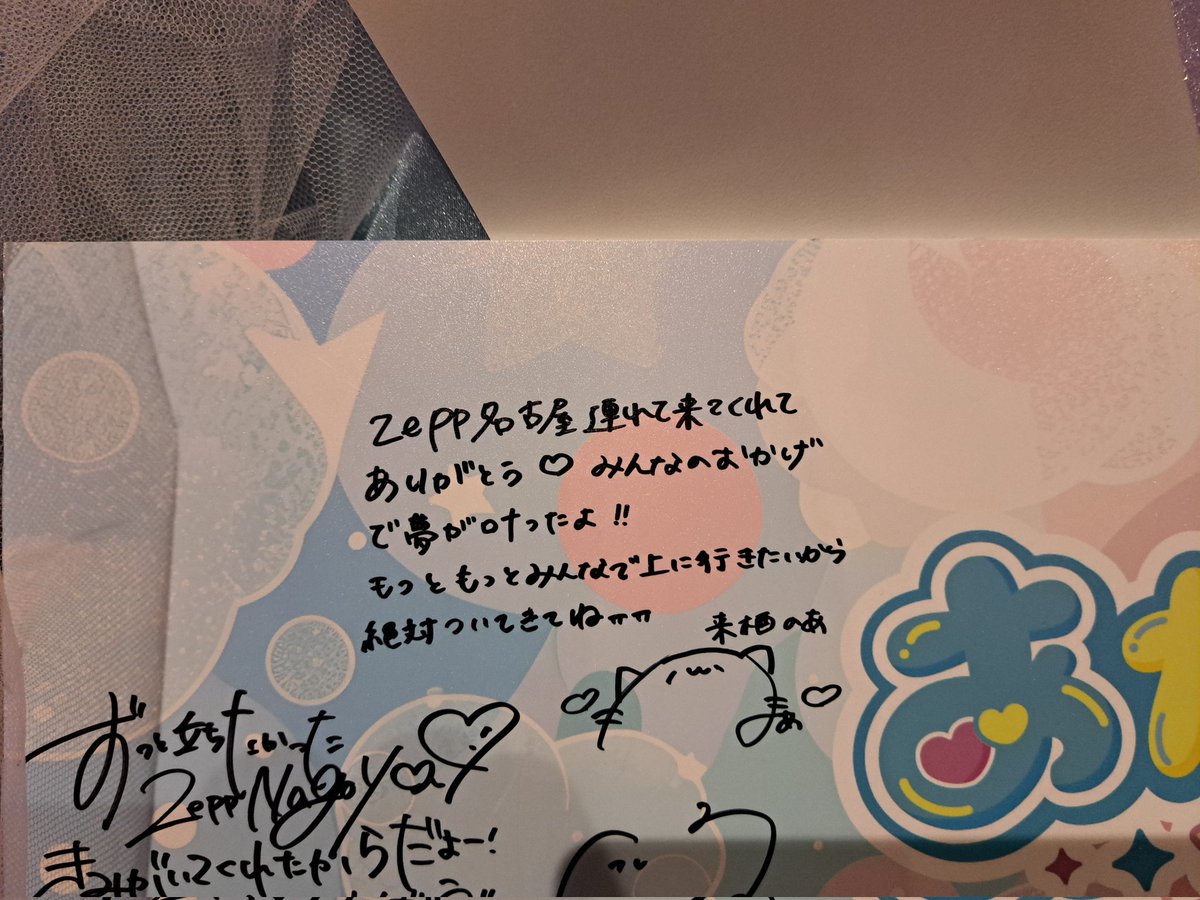 zepp名古屋連れて来てくれて
ありがとう♡みんなのおかげ
で夢が叶ったよ!!
もっともっとみんなで上に行きたいから
絶対ついてきてね
来栖のあ
のあ
ずっと立ちたかった
Zepp Nagoya
いてくれたからだよー!
あ